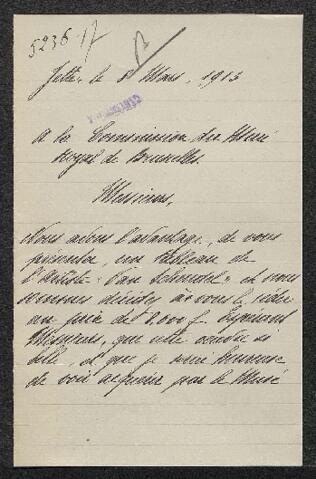 5236
Jette, le 8 Mars, 1913
A la Commission du Musée
royal de Bruxelles.
Messieurs,
Nous avons l'avantage, de vous
présenter, un tableau de
l'artiste "Van Schendel" et nous
sommes décidés à vous le céder
au prix de 8,000 f. Espérant
Messieurs, que cette vendra si
belle, et que je serai heureuse
de voir acquérir par le Musé